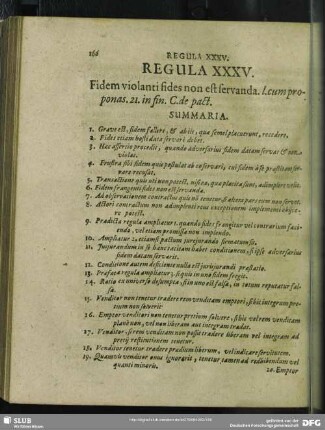 186 REGULA XXXV.
REGULA XXXV.
Fidem violanti fides non est servanda. l. cum pro-
ponas. 21. in fin. C. de pact.
SUMMARIA.
1. Grave est, fidem fallere, & ab iis, quæ semel placuerunt, recedere.
2. Fides etiam hosti data servari debet.
3. Hæc assertio procedit, quando adversarius fidem datam servat & non
violat.
4. Frustra sibi fidem quis postulat ab eo servari, cui fidem à se præstitam ser-
vare recusat.
5. Transactione quis uti non potest, nisi ea, quæ placita sunt, adimplere velit.
6. Fidem frangenti fides non est servanda.
7. Ad observationem contractus quis non tenetur, si altera pars eum non servet.
8. Actori contractum non adimplenti reus exceptionem implementi objice-
re potest.
9. Prædicta regula ampliatur, quando fides frangitur vel contrarium facien-
do, vel etiam promissa non implendo.
10. Ampliatur 2. etiamsi pactum jurejurando firmatum sit.
11. Jusjurandum in se hanc tacitam habet conditionem, si ipse adversarius
fidem datam servarit.
12. Conditione autem deficiente nulla est jurisjurandi præstatio.
13. Præfata regula ampliatur 3. si quis in una fidem fregit.
14. Ratio ex universo desumpta, si in uno est falsa, in totum reputatur fal-
sa.
15. Venditor non tenetur tradere rem venditam emptori, si sibi integrum pre-
tium non solverit
16. Emptor venditori non tenetur pretium solvere, si sibi vel rem venditam
planè non, vel non liberam aut integram tradat.
17. Venditor, si rem venditam non possit tradere liberam vel integram ad
pretij restitutionem tenetur.
18. Venditor tenetur tradere prædium liberum, vel indicare servitutem.
19. Quamvis venditor onus ignorarit, tenetur tamen ad redhibendum vel
quanti minoris.
20. Emptor
SLUB
DFG